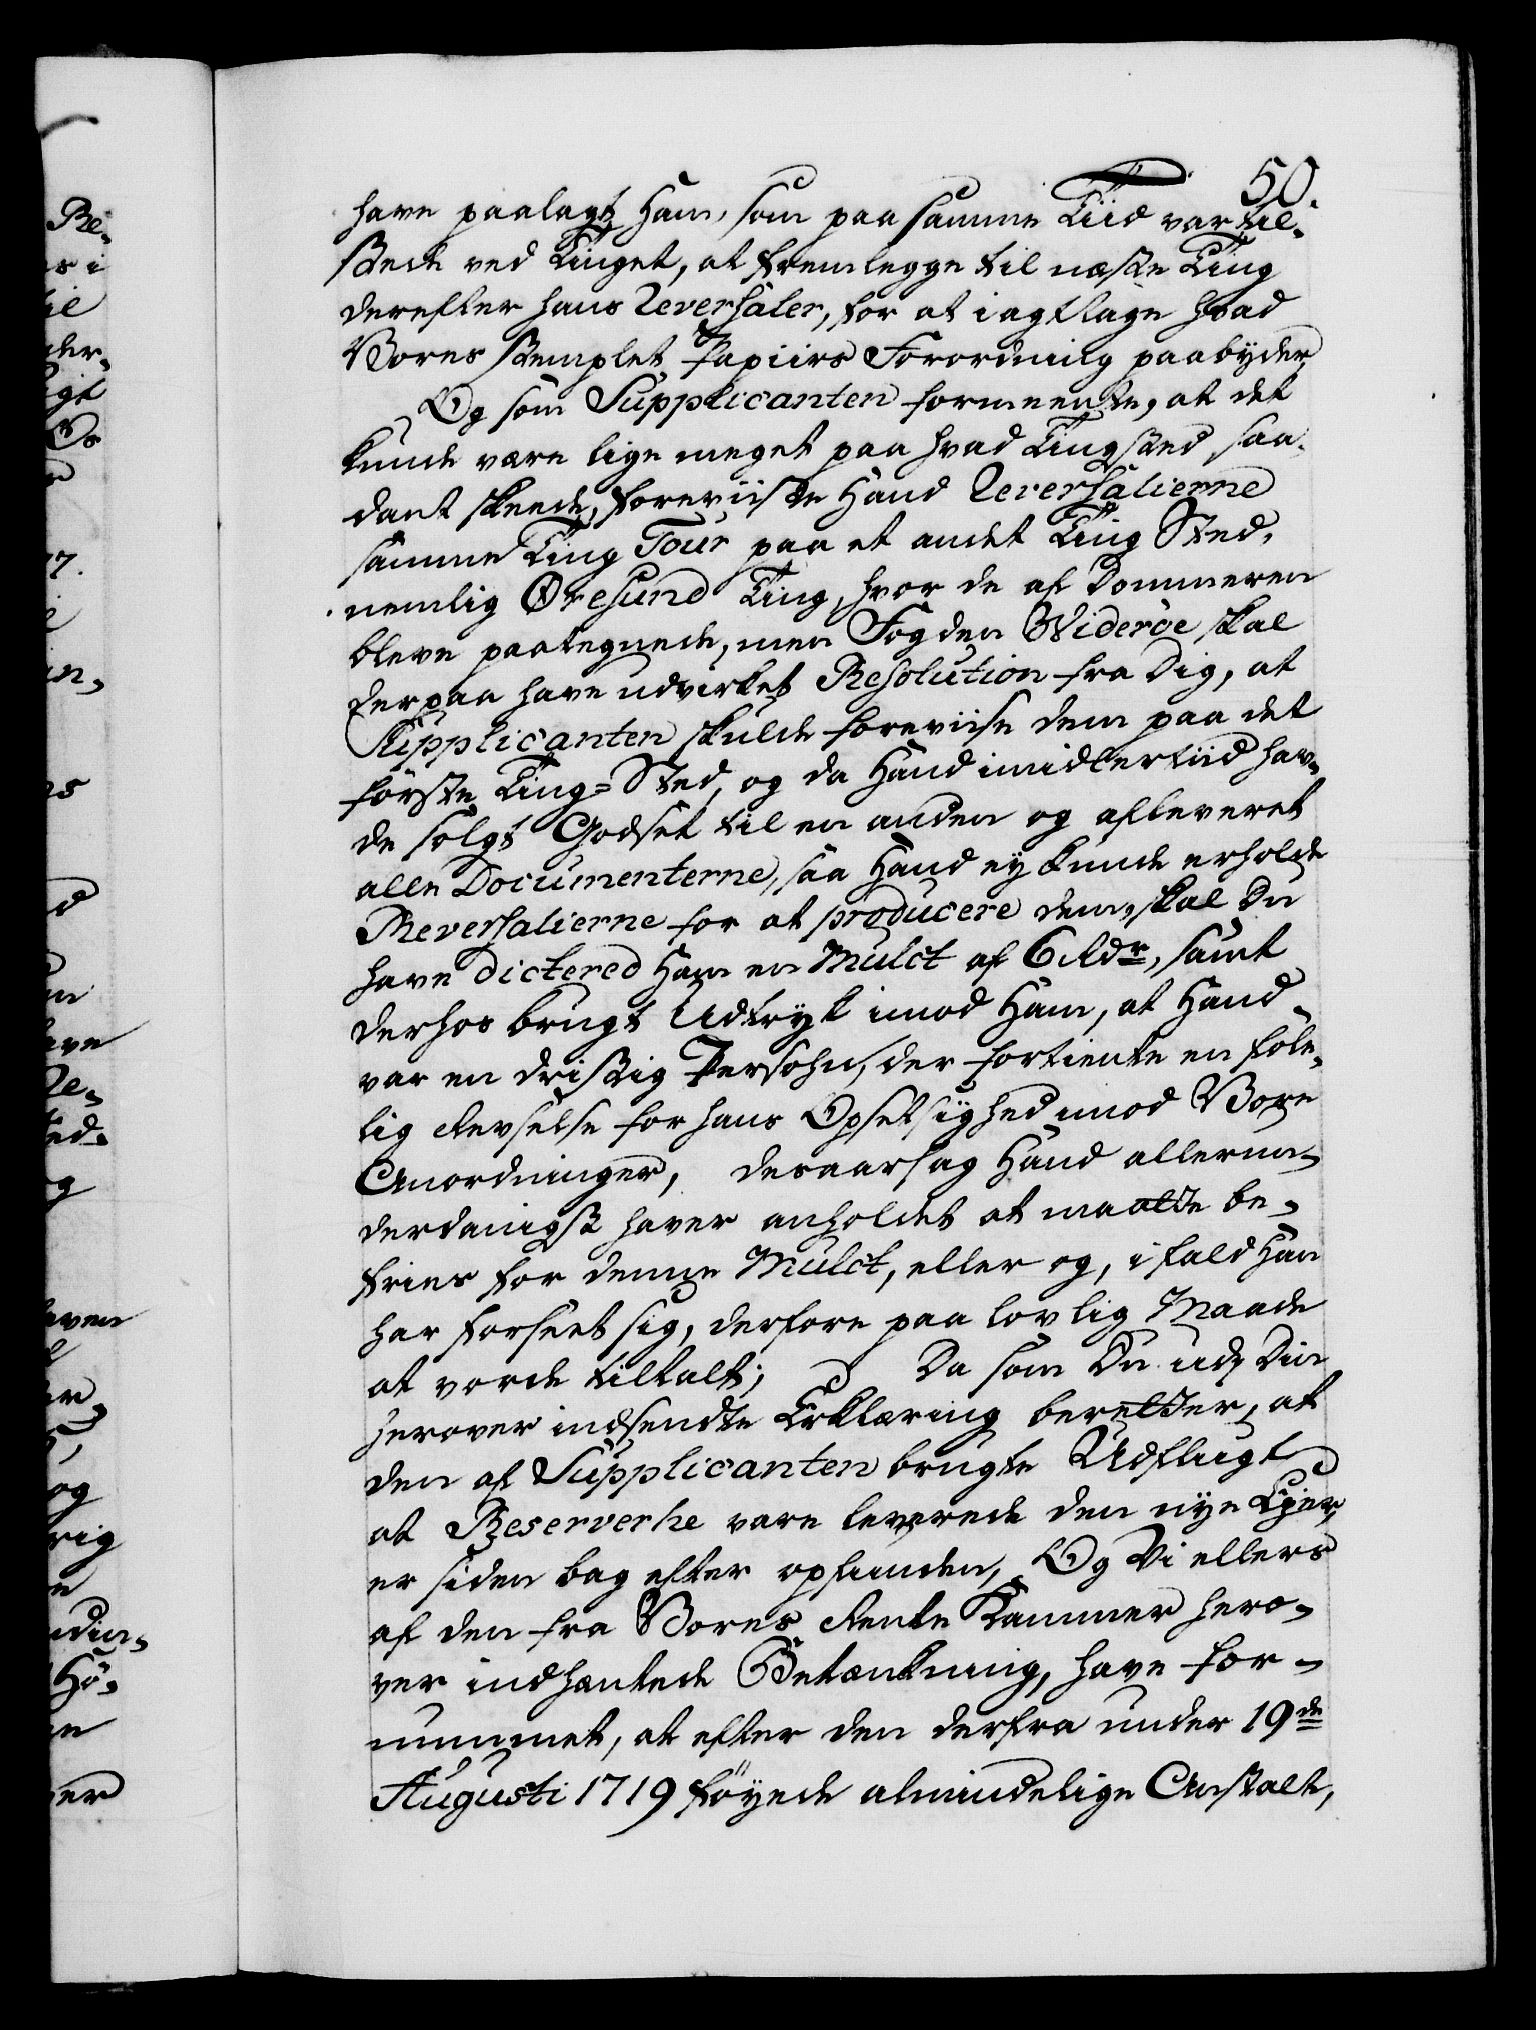 50.
have paalagt Ham, som paa samme Tiid var til-
stede ved Tinget, at fremlegge til næste Ting
derefter hans Reversaler, for at iagttage hvad
Vores stemplet Papiirs Forordning paabyder,
Og som Supplicanten formeente, at det
kunde være lige meget paa hvad Tingsted saa-
dant skeede, foreviiste Hand Reversalierne
samme Ting Tour paa et andet Ting Sted,
nemlig Øresund Ting, hvor de af Dommeren
bleve paategnede, men Fogden Widerøe skal
derpaa have udvirket Resolution fra Dig, at
Supplicanten skulde foreviise dem paa det
første Ting-Sted, og da Hand imidlertiid hav-
de solgt Godset til en anden og afleveret
alle Documenterne, saa Hand ey kunde erholde
Reversalierne for at producere dem, skal Du
have dictered Ham en Mulct af 6 Rdr, samt
derhos brugt Udtryk imod Ham, at Hand
var en dristig Persohn, der fortiente en føle-
lig Revselse for hans Opsetsighed imod Vore
Anordninger, desaarsag Hand allerun-
derdanigst haver anholdet at maatte be-
fries for denne Mulct, eller og, i fald Han
har forseet sig, derfore paa lovlig Maade
at vorde tiltalt; Da som Du udj Din
herover indsendte Erklæring beretter, at
den af Supplicanten brugte Udflugt
at Reserverne vare leverede den nye Ejer,
er siden bag efter opfunden, Og Vi ellers
af den fra Vores Rente Kammer hero-
ver indhentede Betænkning, have for-
nummet, at efter den derfra under 19de
Augusti 1719 føyede almindelige Anstalt,
Re-
es i
til
der-
gt
Os
77.
in-
os
d
ave
Re-
ed-
og
aven
er
og
rig
ndin-
Hø-
er